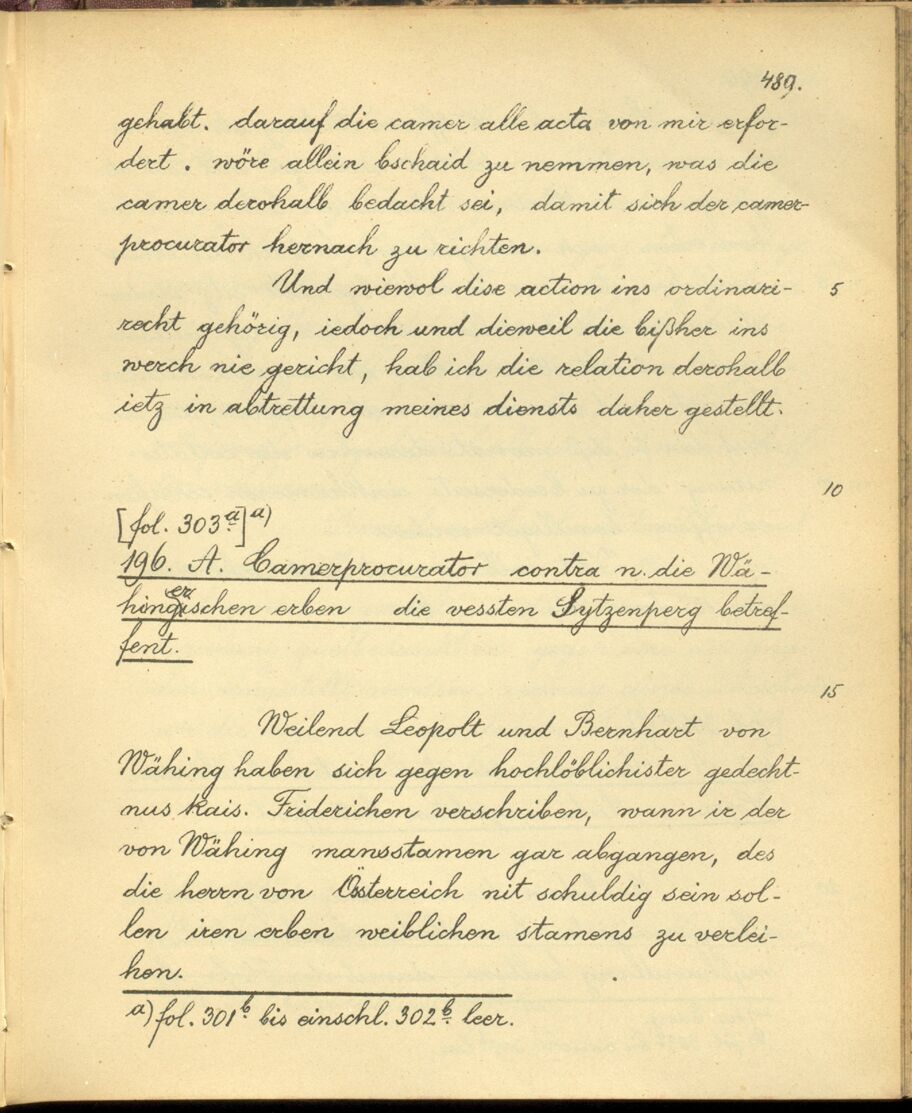 489.
gehabt. darauf die camer alle acta von mir erfor-
dert. wöre allein bschaid zu nemmen, was die
camer derohalb bedacht sei, damit sich der camer-
procurator hernach zu richten.
Und wiewol dise action ins ordinari- 5
recht gehörig, iedoch und dieweil die bißher ins
werch nie gericht, hab ich die relation derohalb
ietz in abtrettung meines diensts daher gestellt.
10
[fol. 303a]a)
196. A. Camerprocurator contra n. die Wä-
hingerischen erben die vessten Sytzenperg betref-
fent.
15
Weilend Leopolt und Bernhart von
Wähing haben sich gegen hochlöblichister gedecht-
nus kais. Friderichen verschriben, wann ir der
von Wähing mansstamen gar abgangen, des
die herrn von Österreich nit schuldig sein sol-
len iren erben weiblichen stamens zu verlei-
hen.
a) fol. 301b bis einschl. 302b leer.